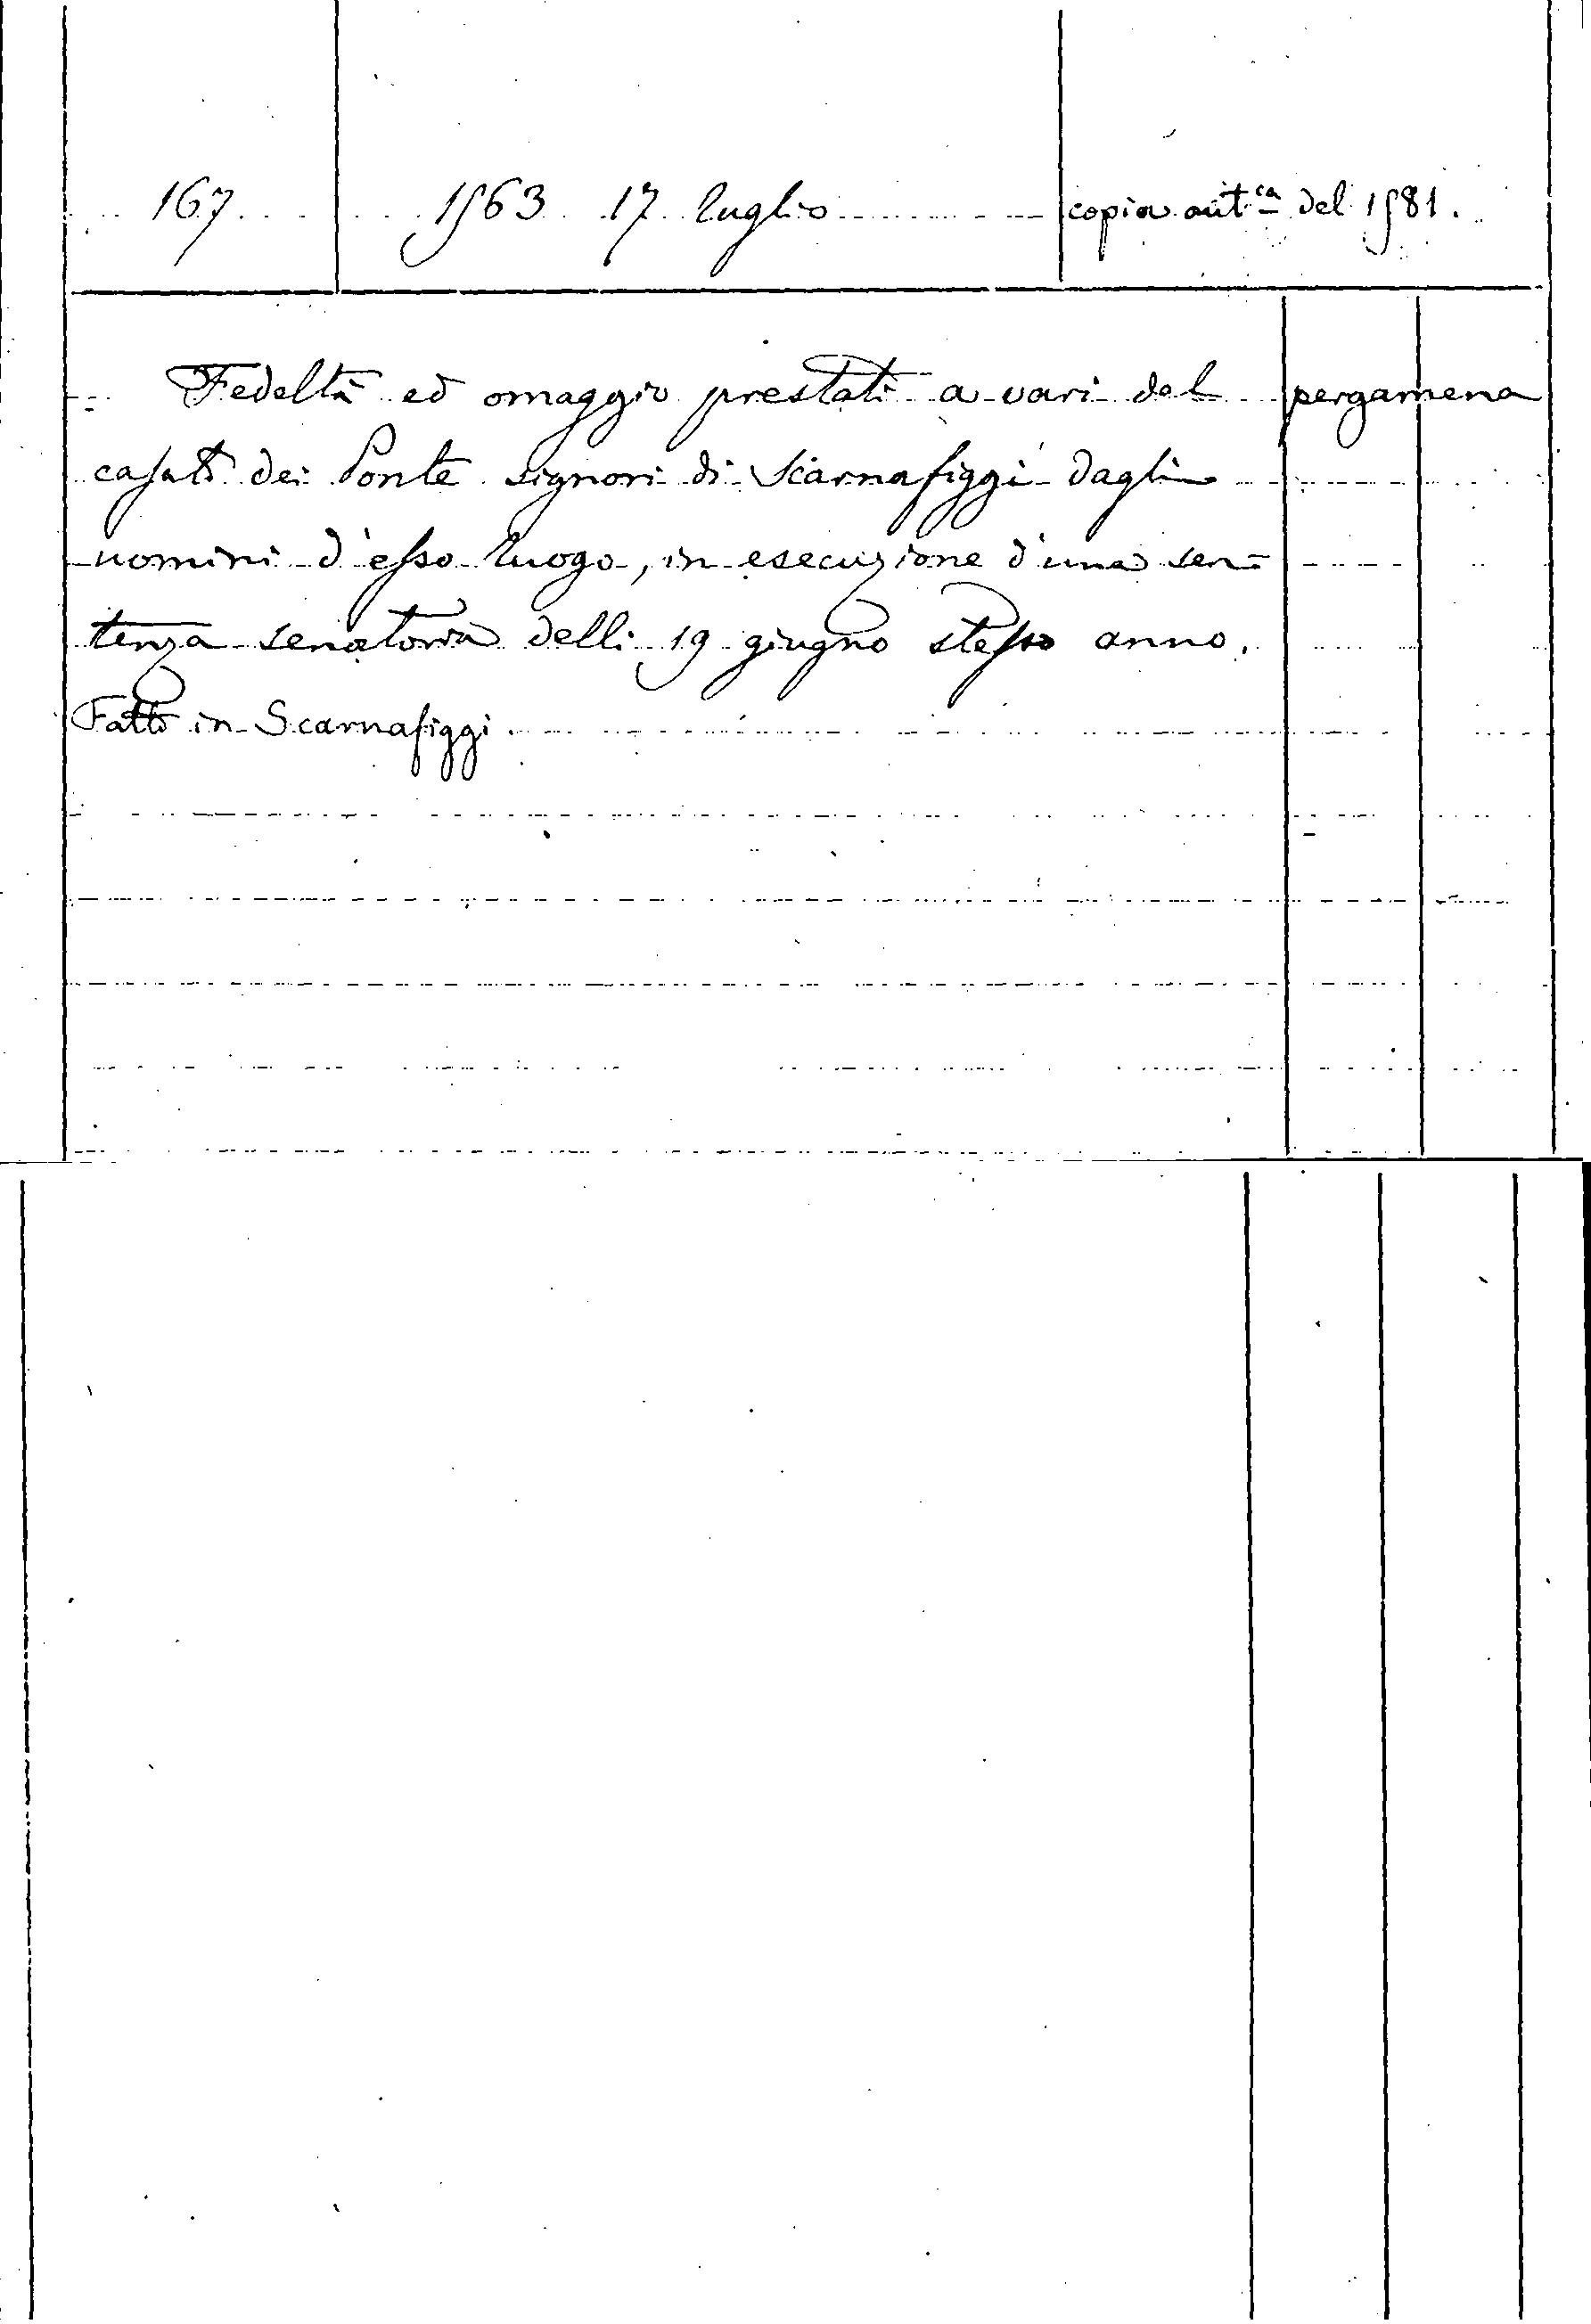 167 1563 17 luglio copia aut.ca del 1581.
Fedeltà ed omaggio prestati a vari del pergamena
casato dei Ponte signori di Scarnafiggi dagli
uomini d'esso luogo, in esecuzione d'una sen=
tenza senatoria delli 19 giugno stesso anno.
Fatto in Scarnafiggi.